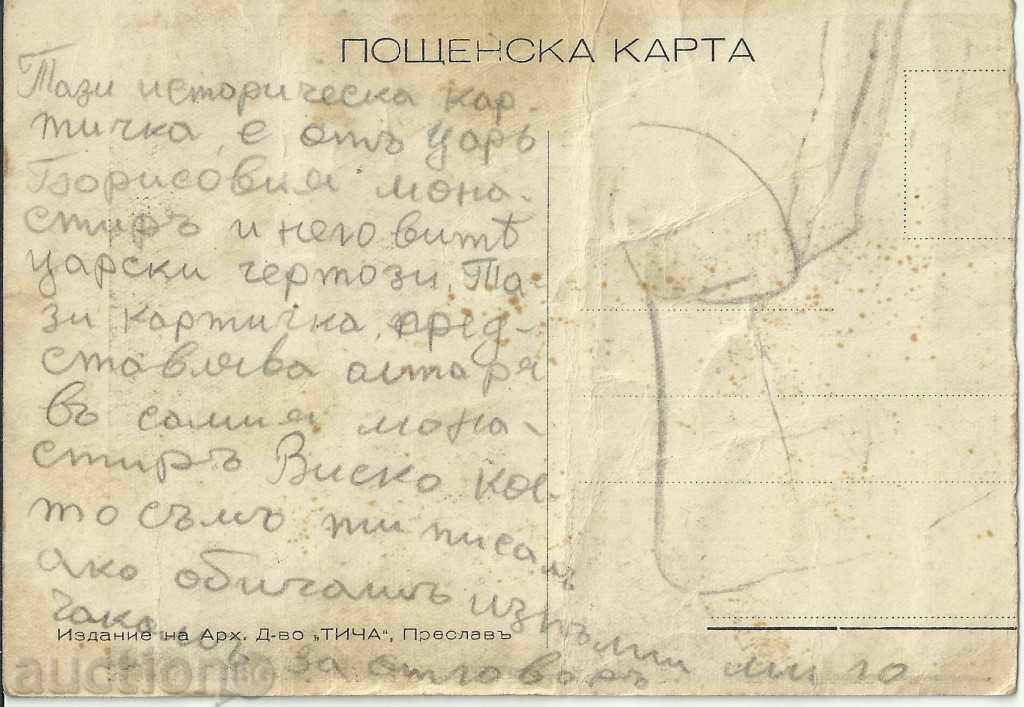 ПОЩЕНСКА КАРТА
Тази историческа кар-
тичка, е отъ царь
Борисовия мона-
стиръ и неговитѣ
царски чертози. Та-
зи картична пред-
ставлява олтаря
въ самия мона-
стиръ Виско кое-
то съмъ ти писалъ
ако обичашъ изпълни ми го
чакамъ за отговоръ
Издание на Арх. Д-во „ТИЧА“, Преславъ
auction